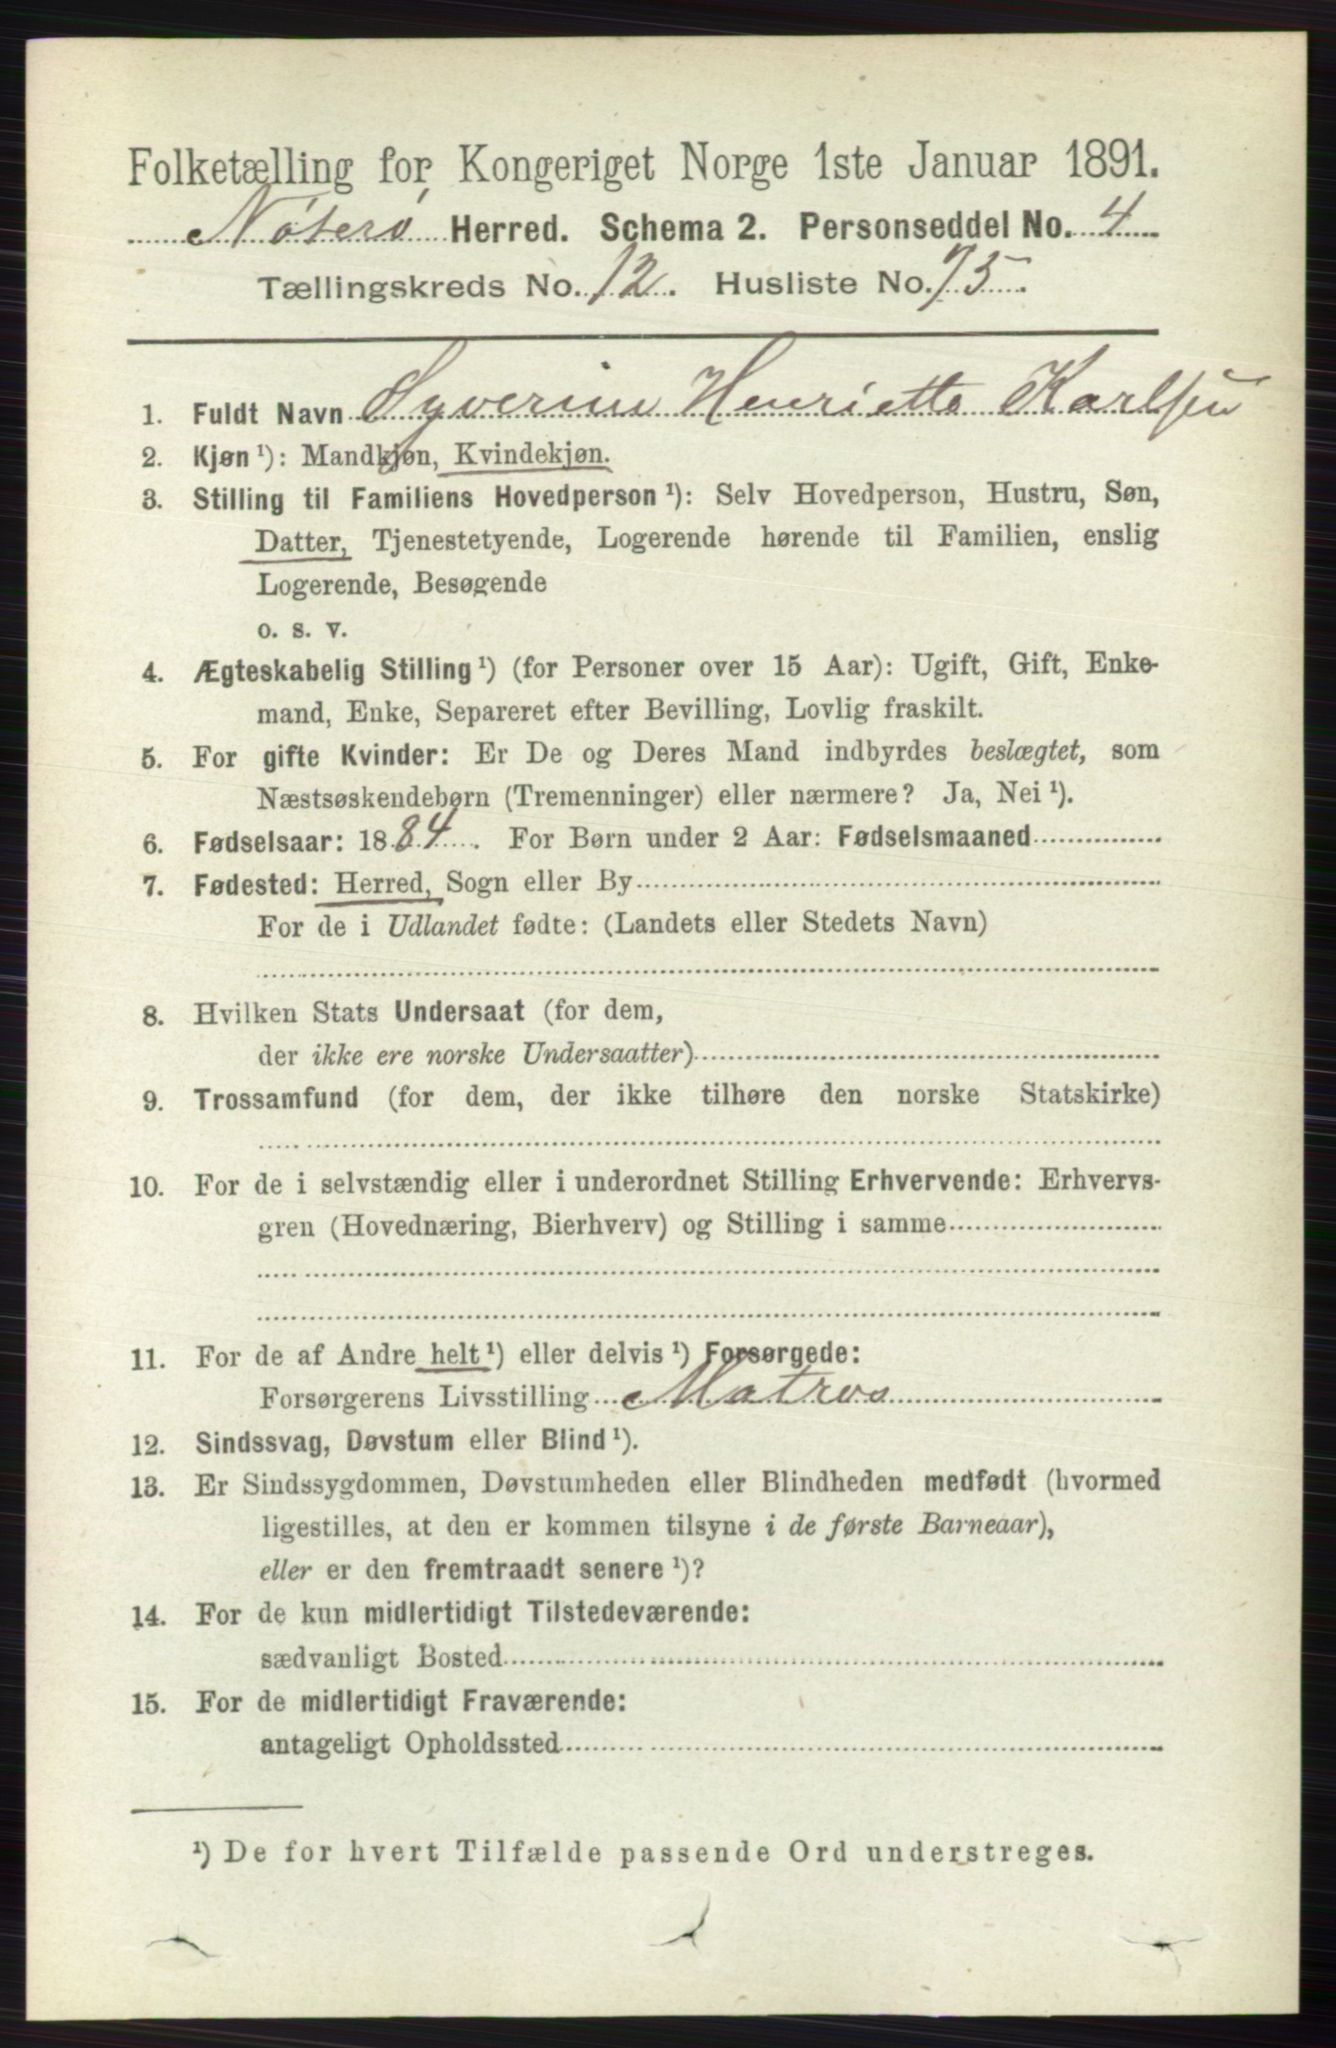 Folketælling for Kongeriget Norge 1ste Januar 1891.
Nøterø Herred. Schema 2. Personseddel No. 4
Tællingskreds No. 12. Husliste No. 75.
1. Fuldt Navn Syverine Henriette Karlsen
2. Kjøn ¹): Mandkjøn, Kvindekjøn.
3. Stilling til Familiens Hovedperson ¹): Selv Hovedperson, Hustru, Søn,
Datter, Tjenestetyende, Logerende hørende til Familien, enslig
Logerende, Besøgende
o. s. v.
4. Ægteskabelig Stilling ¹) (for Personer over 15 Aar): Ugift, Gift, Enke-
mand, Enke, Separeret efter Bevilling, Lovlig fraskilt.
5. For gifte Kvinder: Er De og Deres Mand indbyrdes beslægtet, som
Næstsøskendebørn (Tremenninger) eller nærmere? Ja, Nei ¹).
6. Fødselsaar: 1884. For Børn under 2 Aar: Fødselsmaaned
7. Fødested: Herred, Sogn eller By
For de i Udlandet fødte: (Landets eller Stedets Navn)
8. Hvilken Stats Undersaat (for dem,
der ikke ere norske Undersaatter)
9. Trossamfund (for dem, der ikke tilhøre den norske Statskirke)
10. For de i selvstændig eller i underordnet Stilling Erhvervende: Erhvervs-
gren (Hovednæring, Bierhverv) og Stilling i samme
11. For de af Andre helt ¹) eller delvis ¹) Forsørgede:
Forsørgerens Livsstilling Matros
12. Sindssvag, Døvstum eller Blind ¹).
13. Er Sindssygdommen, Døvstumheden eller Blindheden medfødt (hvormed
ligestilles, at den er kommen tilsyne i de første Barneaar),
eller er den fremtraadt senere ¹)?
14. For de kun midlertidigt Tilstedeværende:
sædvanligt Bosted
15. For de midlertidigt Fraværende:
antageligt Opholdssted
¹) De for hvert Tilfælde passende Ord understreges.